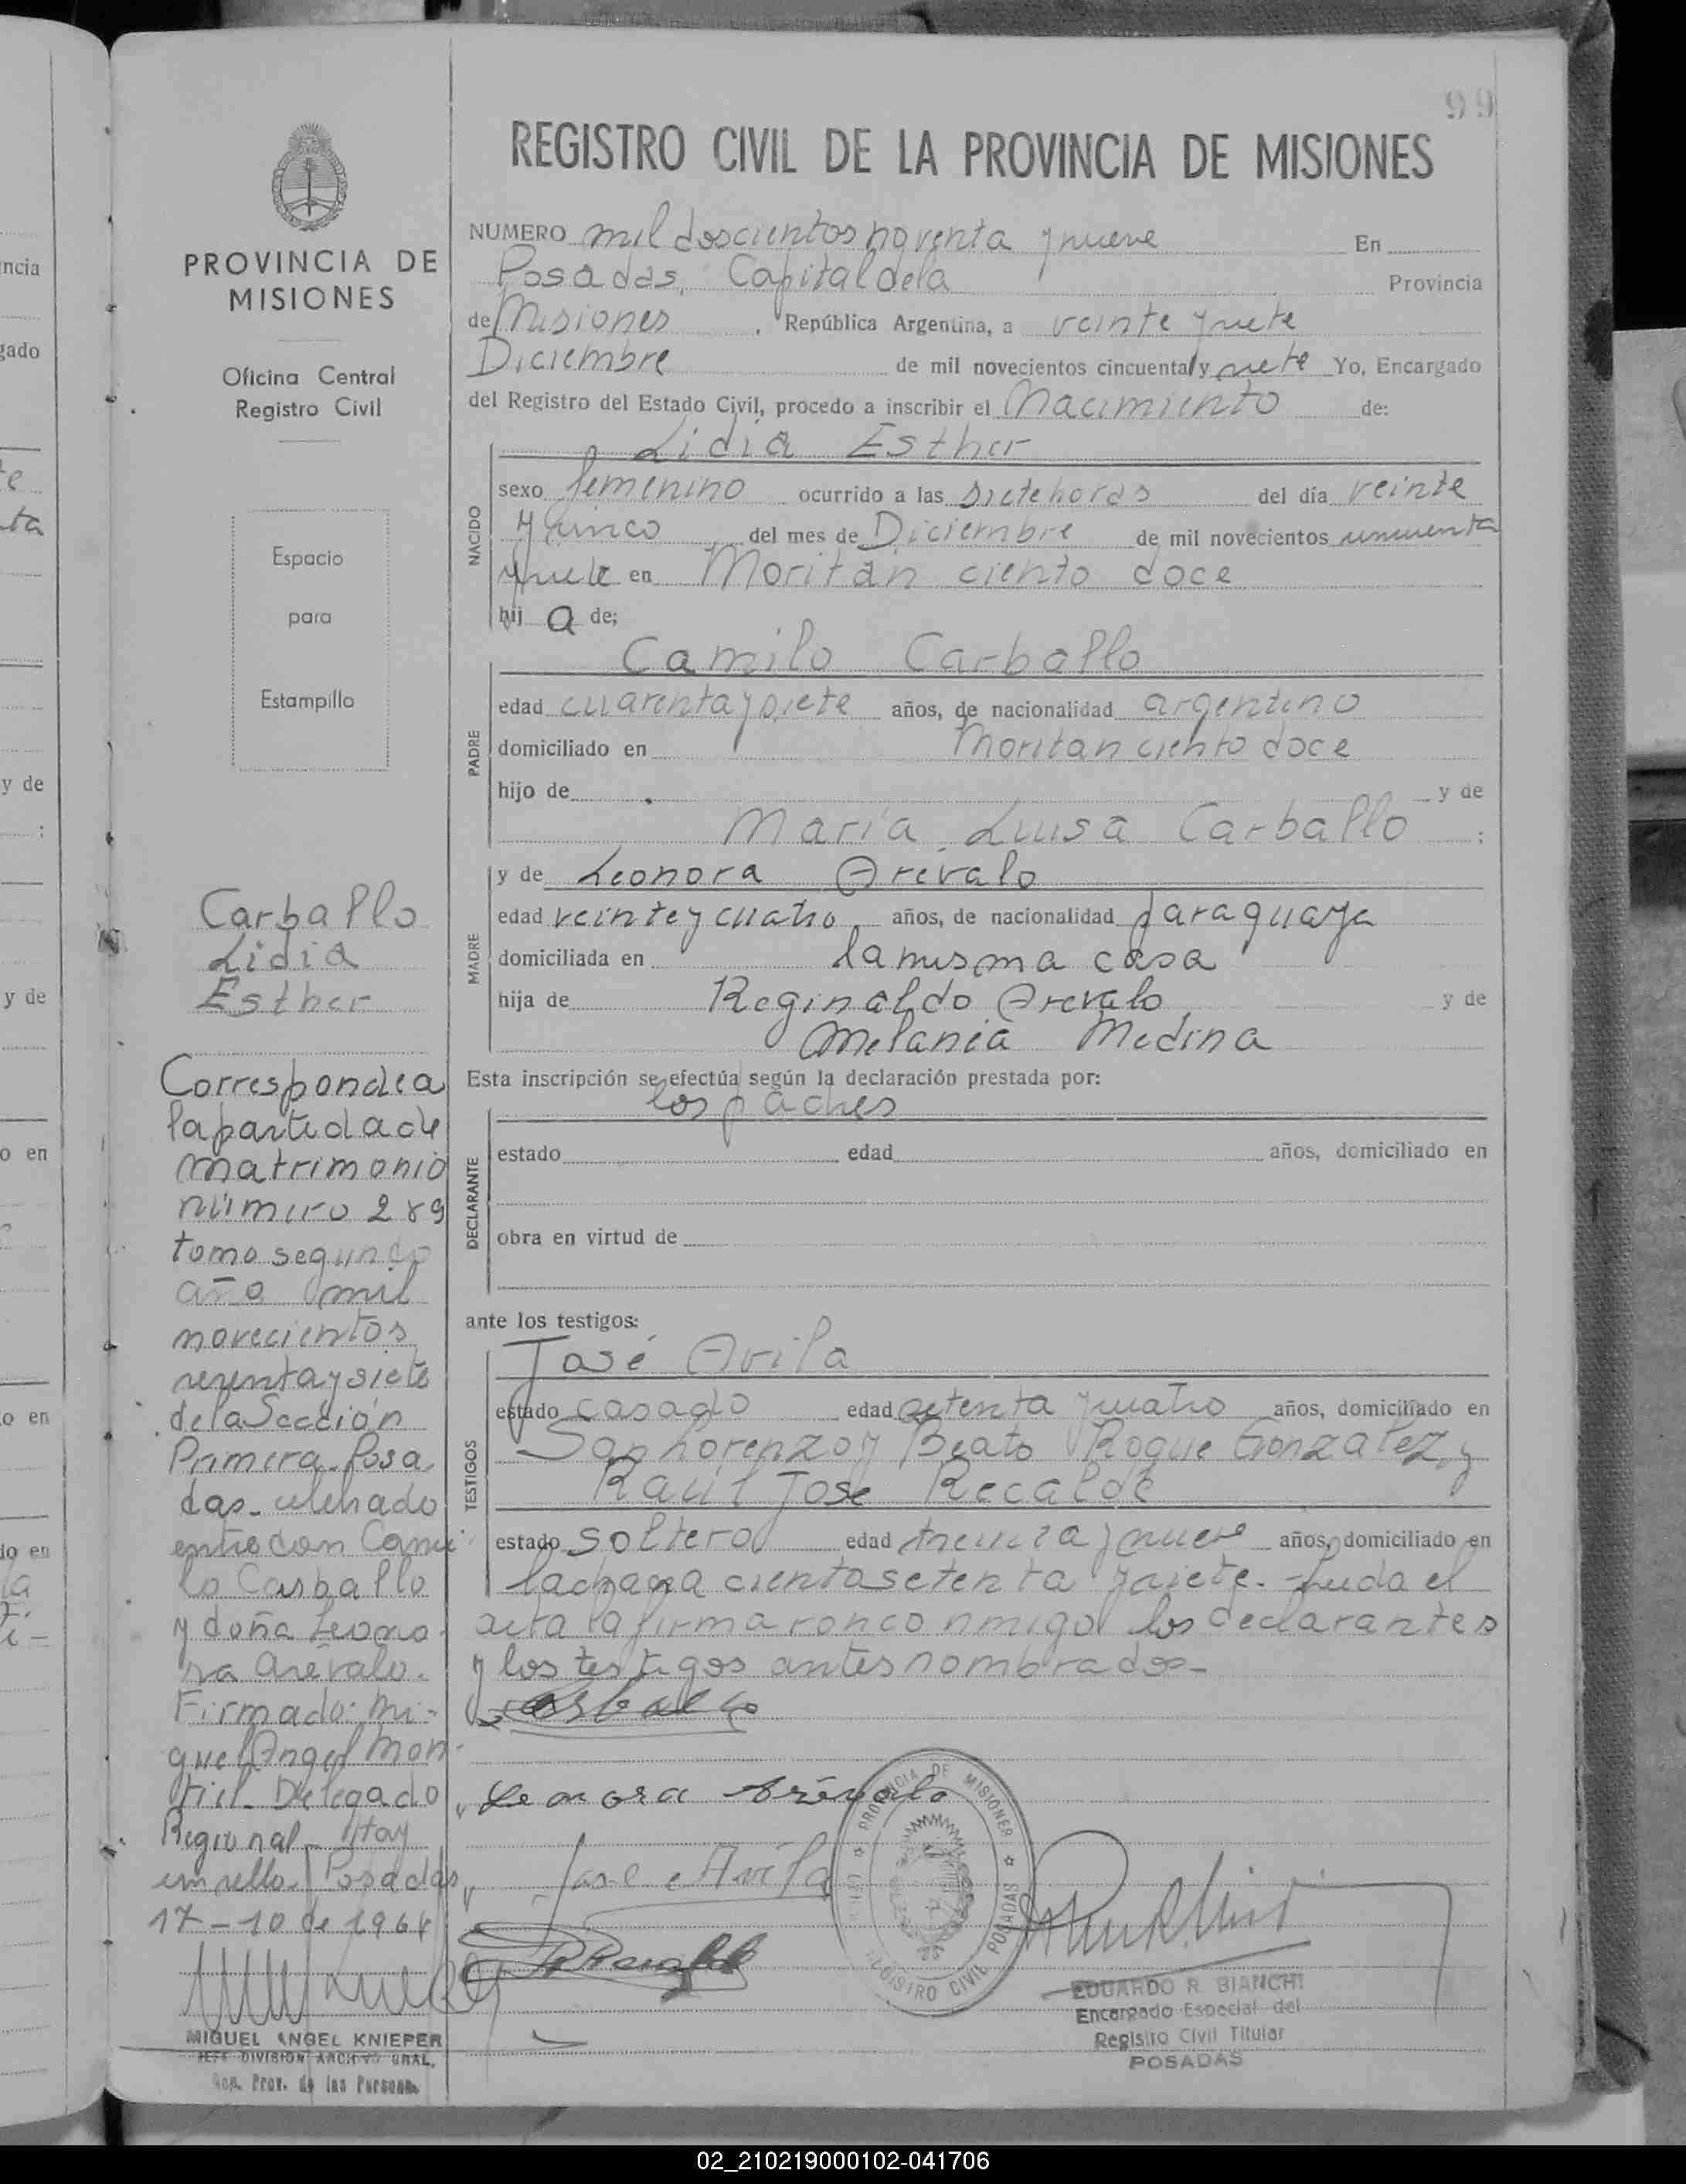 99
REGISTRO CIVIL DE LA PROVINCIA DE MISIONES
PROVINCIA DE
MISIONES
Oficina Central
Registro Civil
Espacio
para
Estampilla
Carballo
Lidia
Esther
Corresponde a
la partida de
matrimonio
número 289
tomo segundo
año mil
novecientos
sesenta y siete
de la Sección
Primera. Posa
das. celebrado
entre don Cami
lo Carballo
y doña Leono
ra Arévalo.
Firmado: Mi-
guel Angel Mon
tiel. Delegado
Regional. Hay
un sello. Posadas
17-10 de 1968
MIGUEL ANGEL KNIEPER
JEFE DIVISION ARCHIVO GRAL.
Prov. de las Personas
NUMERO mil doscientos noventa y nueve En
Posadas, Capital de la Provincia
de Misiones, República Argentina, a veinte y siete
Diciembre de mil novecientos cincuenta y siete Yo, Encargado
del Registro del Estado Civil, procedo a inscribir el Nacimiento de:
NACIDO
Lidia Esther
sexo femenino ocurrido a las siete horas del día veinte
y cinco del mes de Diciembre de mil novecientos cincuenta
y siete en Moritán ciento doce
hij a de;
PADRE
Camilo Carballo
edad cuarenta y siete años, de nacionalidad argentino
domiciliado en Moritan ciento doce
hijo de y de
María Luisa Carballo ;
MADRE
y de Leonora Arevalo
edad veinte y cuatro años, de nacionalidad paraguaya
domiciliada en la misma casa
hija de Reginaldo Arevalo y de
Melania Medina
Esta inscripción se efectúa según la declaración prestada por:
los padres
DECLARANTE
estado edad años, domiciliado en
obra en virtud de
ante los testigos:
TESTIGOS
José Avila
estado casado edad setenta y cuatro años, domiciliado en
San Lorenzo y Beato Roque Gonzalez, y
Raúl José Recalde
estado soltero edad treinta y nueve años, domiciliado en
la chacra ciento setenta y siete. Leida el
acta la firmaron conmigo los declarantes
y los testigos antes nombrados-
Carballo
Leonora Arévalo
José Avila
PROVINCIA DE MISIONES
REGISTRO CIVIL POSADAS
EDUARDO R. BIANCHI
Encargado Especial del
Registro Civil Titular
POSADAS
ncia
gado
y de
y de
o en
o en
do en
02_210219000102-041706